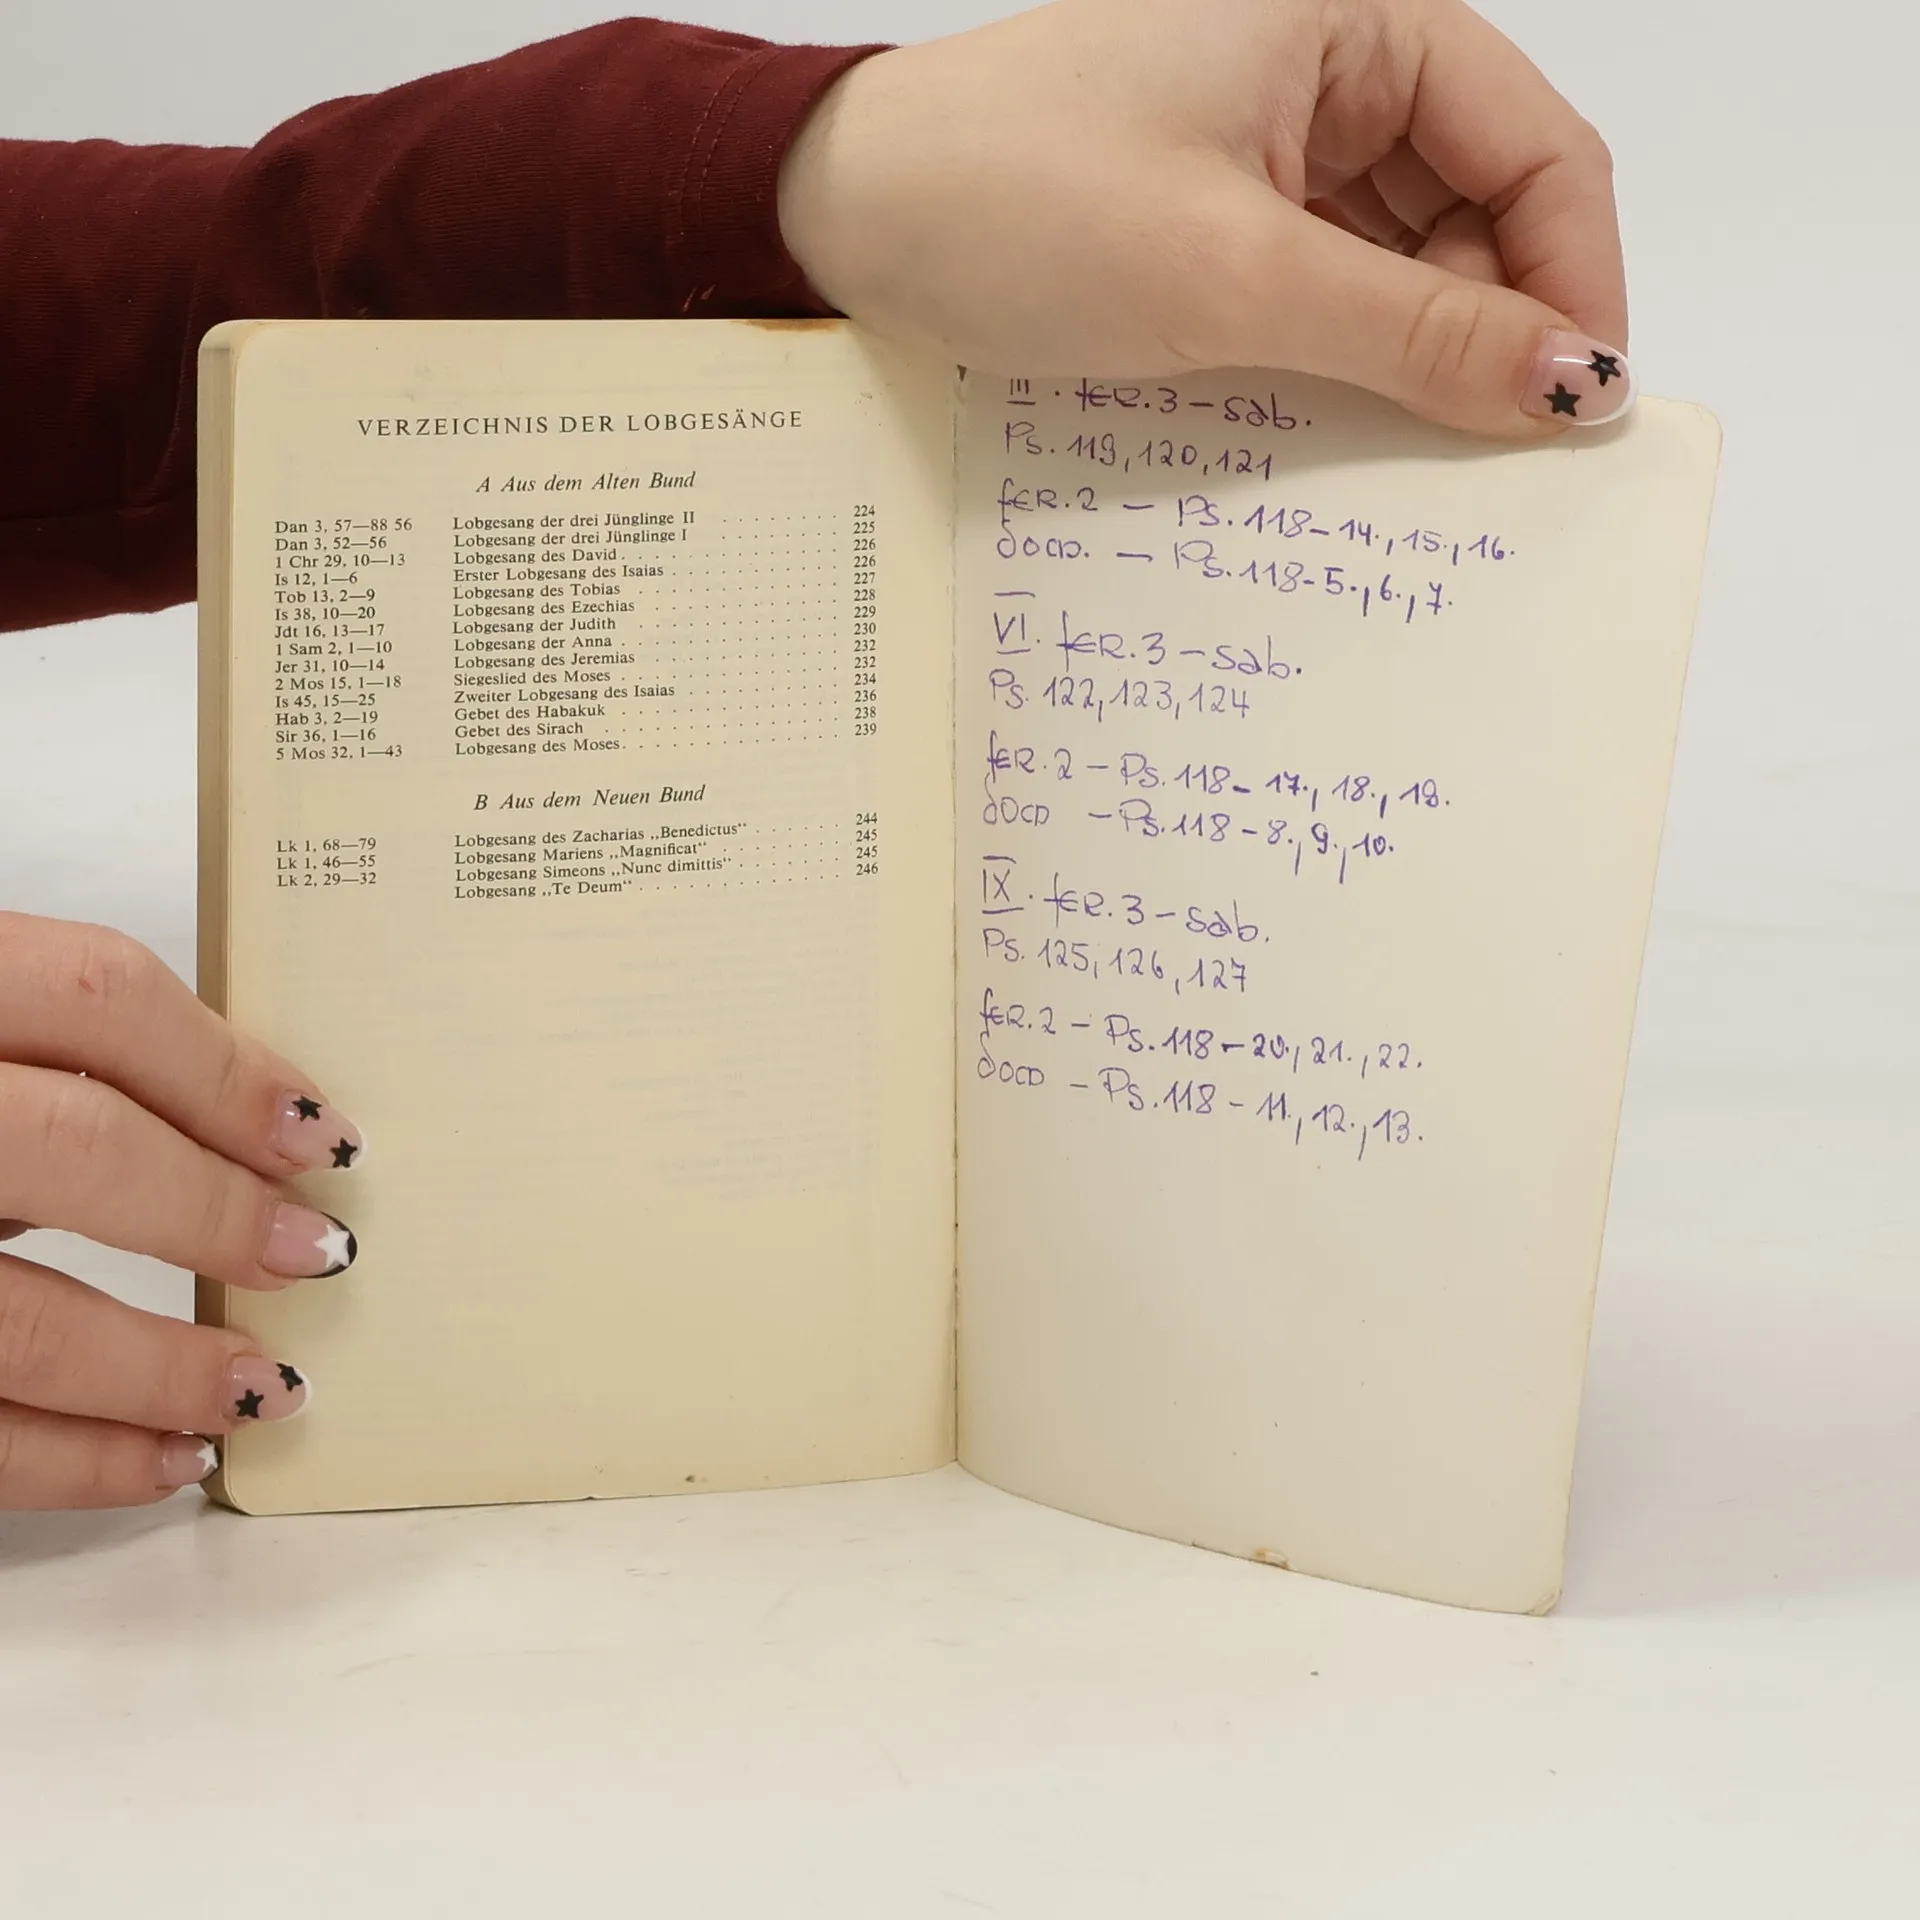 VERZEICHNIS DER LOBGESÄNGE
A Aus dem Alten Bund
Dan 3, 57—88 56 Lobgesang der drei Jünglinge II . . . . . . . 224
Dan 3, 52—56 Lobgesang der drei Jünglinge I . . . . . . . 225
1 Chr 29, 10—13 Lobgesang des David . . . . . . . . . . . . 226
Is 12, 1—6 Erster Lobgesang des Isaias . . . . . . . . . 226
Tob 13, 2—9 Lobgesang des Tobias . . . . . . . . . . . 227
Is 38, 10—20 Lobgesang des Ezechias . . . . . . . . . . 228
Jdt 16, 13—17 Lobgesang der Judith . . . . . . . . . . . 229
1 Sam 2, 1—10 Lobgesang der Anna . . . . . . . . . . . . 230
Jer 31, 10—14 Lobgesang des Jeremias . . . . . . . . . . 232
2 Mos 15, 1—18 Siegeslied des Moses . . . . . . . . . . . . 232
Is 45, 15—25 Zweiter Lobgesang des Isaias . . . . . . . . 234
Hab 3, 2—19 Gebet des Habakuk . . . . . . . . . . . . 236
Sir 36, 1—16 Gebet des Sirach . . . . . . . . . . . . . 238
5 Mos 32, 1—43 Lobgesang des Moses . . . . . . . . . . . . 239
B Aus dem Neuen Bund
Lk 1, 68—79 Lobgesang des Zacharias „Benedictus“ . . . . . 244
Lk 1, 46—55 Lobgesang Mariens „Magnificat“ . . . . . . . 245
Lk 2, 29—32 Lobgesang Simeons „Nunc dimittis“ . . . . . . 245
Lobgesang „Te Deum“ . . . . . . . . . . . 246
III. fER.3 – sab.
Ps. 119, 120, 121
fER.2 – Ps. 118 – 14., 15., 16.
– Ps. 118 – 5., 6., 7.
VI. fER.3 – sab.
Ps. 122, 123, 124
fER.2 – Ps. 118 – 17., 18., 19.
– Ps. 118 – 8., 9., 10.
IX. fER.3 – sab.
Ps. 125, 126, 127
fER.2 – Ps. 118 – 20., 21., 22.
– Ps. 118 – 11., 12., 13.